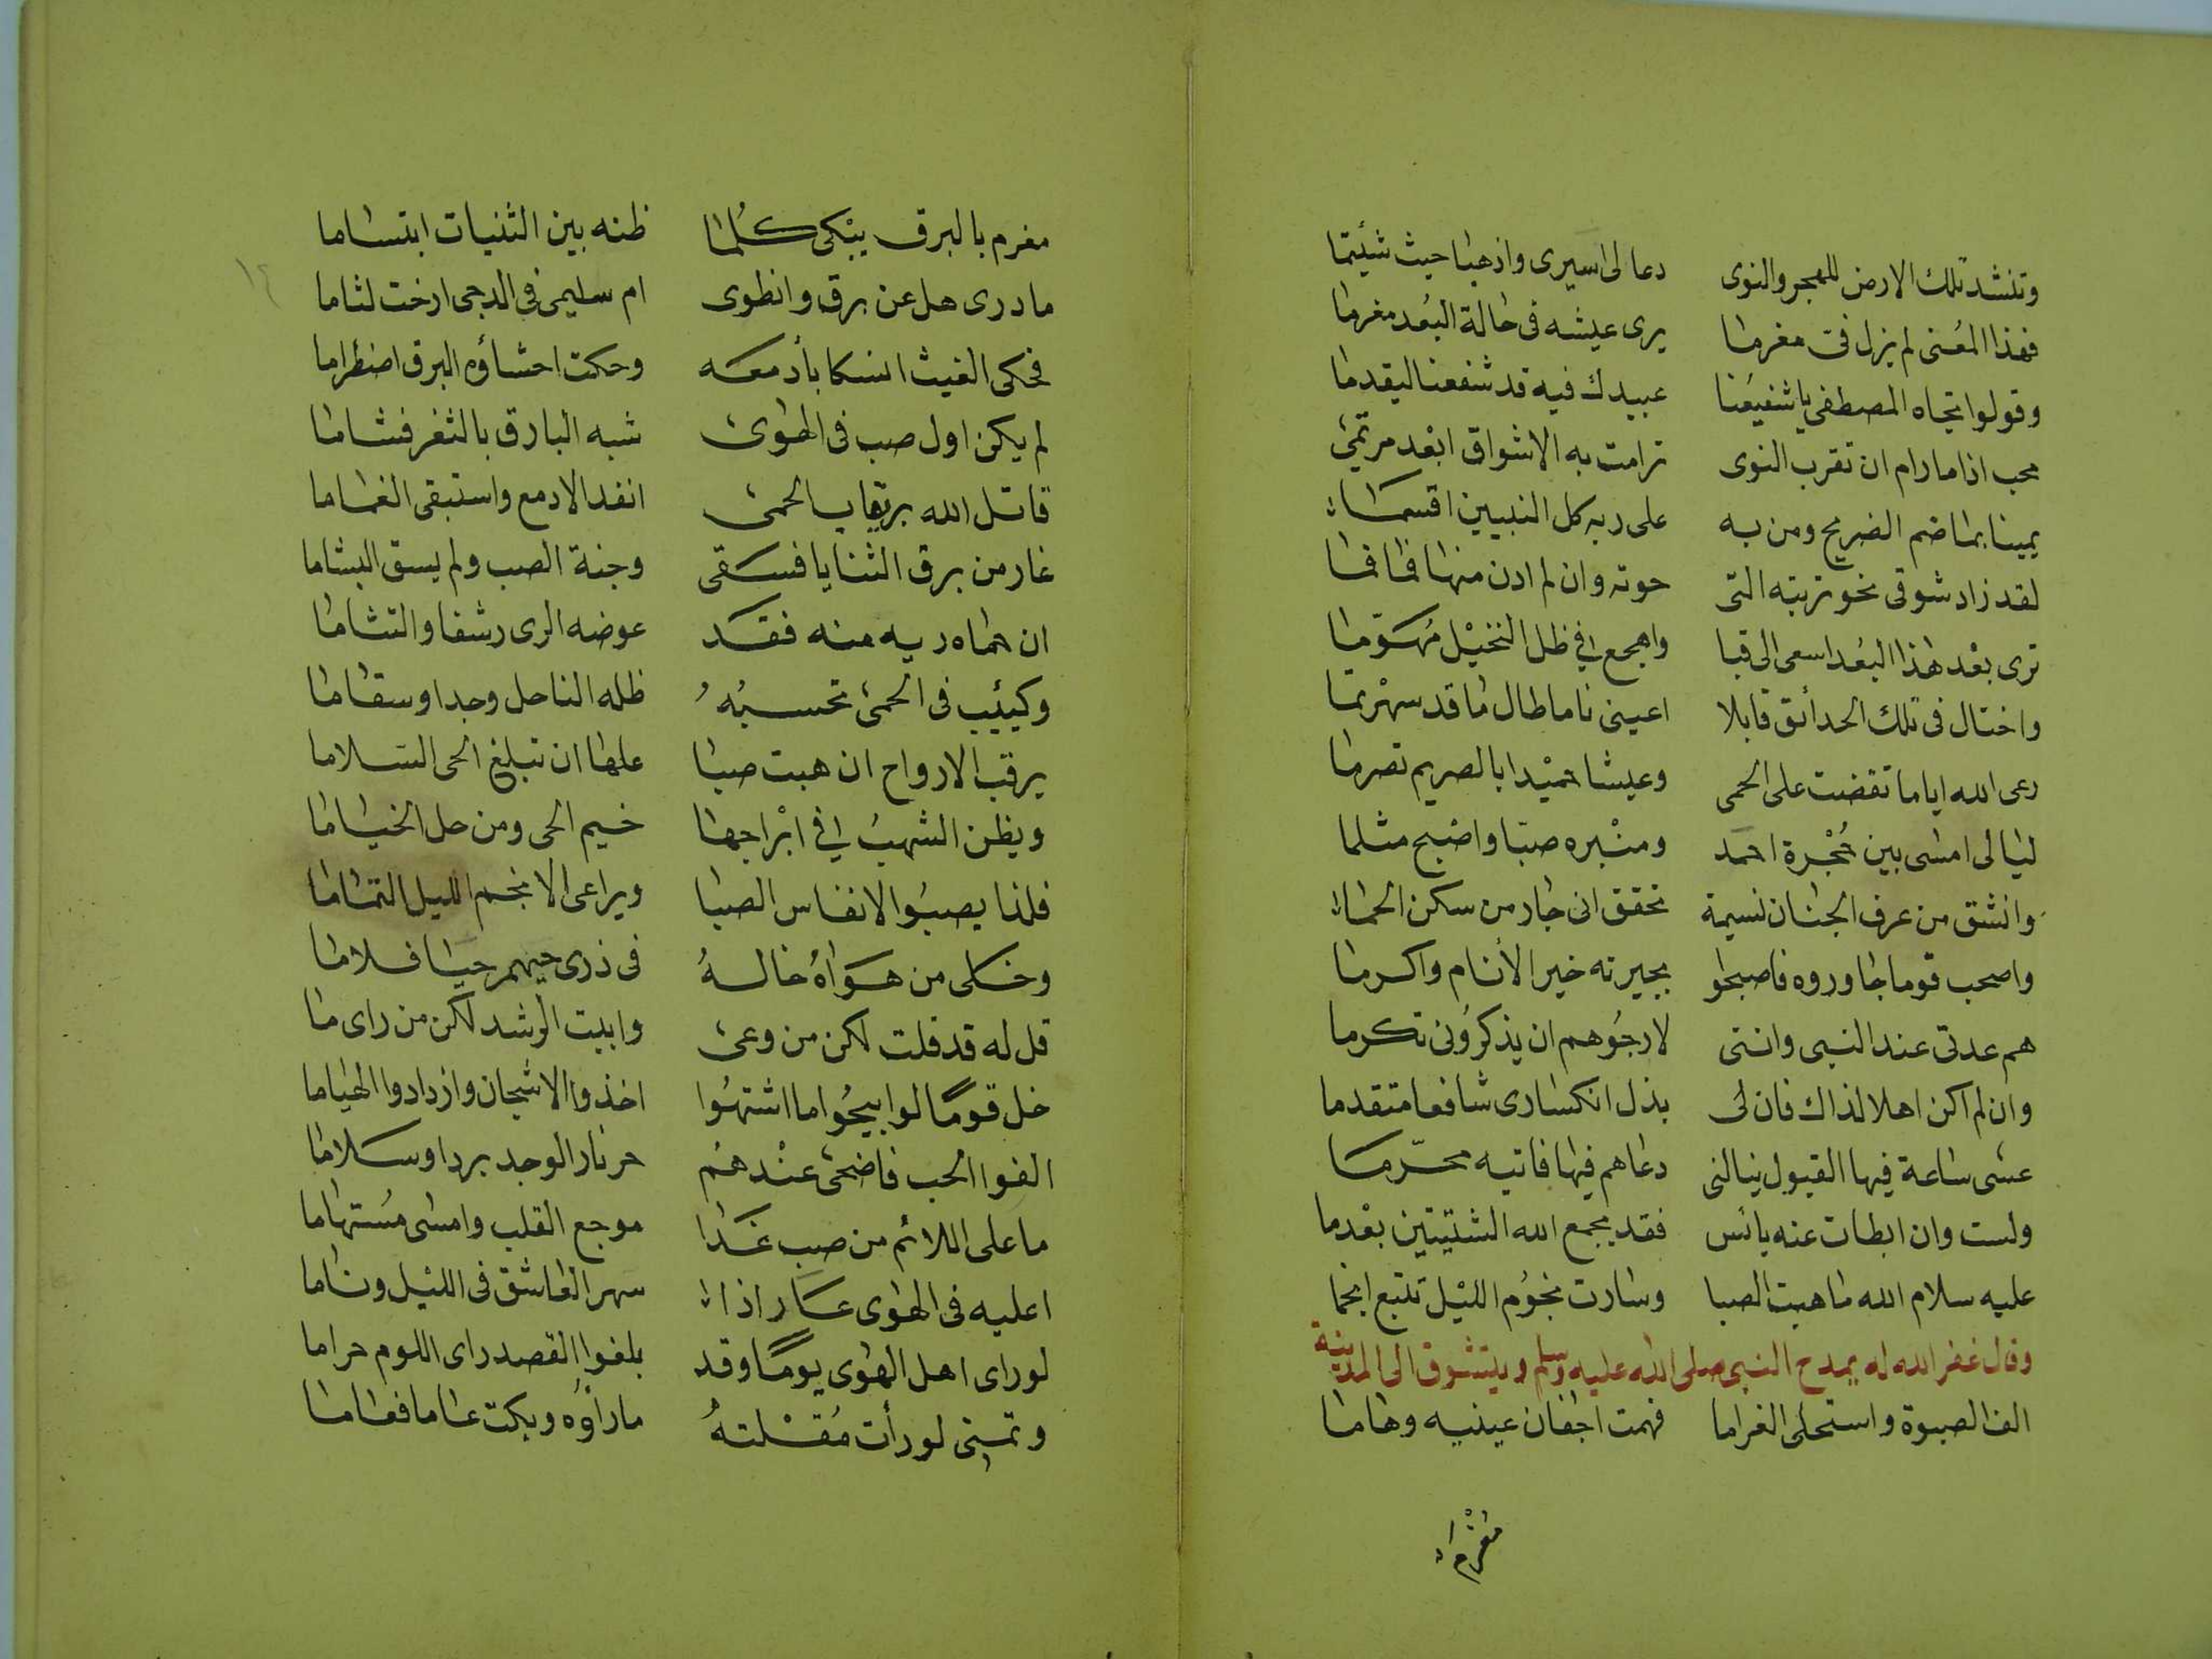 وتنشد تلك الارض للهجر والنوى دعا لى اسيرى واذهبا حيث شئيتما
فهذا المُعنى لم يزل فى مغرما يرى عيشه فى حالة البُعد مغرما
وقولوا تجاه المصطفى يا شفيعُنا عبيدك فيه قد شفعنا ليقدما
محب اذا ما رام ان تقرب النوى ترامت به الاشواق ابْعد مرتمى
يمينا بما ضم الضريح ومن به على ربه كل النبيين اقسما
لقد زاد شوقى نحو تربته التى حوته وان لم ادن منها فما فما
ترى بعْد هذا البُعد اسعى الى قبا واهجع فى ظل النخيْل مُهَوّما
واختال فى تلك الحدائق قايلا اعينى ناما طال ما قد سهرْتما
رعى الله اياما تقضت على الحمى وعيشا حميْدا بالصريم تصرما
ليالى امشى بين حُجْرة احمد ومنْبره صبّا واضبح مثلما
وانشق من عرف الجنان نسيمة تحقق انى جار من سكن الحما
واصحب قوما جاوروه فاصبحوا بجيرته خير الأنام واكرما
هم عدتى عند النبى واننى لارجُوهم ان يذكرُونى تكرما
وان لم اكن اهلا لذاك فان لى بذل انكسارى شافعا متقدما
عسى ساعة فيها القبول ينالنى دعاهم فيها فاتيه محرّما
ولست وان ابطات عنه يائس فقد يجمع الله الشتيتين بعْدما
عليه سلام الله ما هبت الصبا وسارت نجُوم الليْل تتبع انجما
وقال غفر الله له يمدح النبى صلى الله عليه وسلم ويتشوق الى المدينة
الف الصبوة واستحلى الغراما فهمت اجفان عينيه وهاما
مغرم
١٢
مغرم بالبرق يبْكى كُلما ظنه بين الثنيات ابتساما
ما درى هل عن برق وانطوى ام سليمى فى الدجى ارخت لثاما
فحكى الغيث انسكابا أدمعه وحكت احشاؤه البرق اضطراما
لم يكن اول صب فى الهوى شبه البارق بالثغر فشاما
قاتل الله بريقا بالحمى انفد الادمع واستبقى الغماما
غار من برق الثنايا فسقى وجنة الصب ولم يسق البشاما
ان حماه ريه منه فقد عوضه الرى رشفا والتشاما
وكيئب فى الحمى تحسبُهُ ظله الناحل وجدا وسقاما
يرقب الارواح ان هبت صبا علها ان تبلغ الحى السلاما
ويظن الشهبُ فى ابْراجها خيم الحى ومن حل الخياما
فلذا يصبُوا لانفاس الصبا ويراعى الانجم الليل التماما
وخلى من هَوَاهُ خاله فى ذرى حيهم حيا فلاما
قل له قد قلت لكن من وعى وابيت الرشد لكن من راى ما
خل قومًا لوا بيحُوا ما اشتهُوا اخذوا الاشجان وازدادوا الهياما
الفوا الحب فاضحى عنْدهُم حر نار الوجد بردا وسلاما
ما على اللائم من صب غدا موجع القلب وامسى مُستهاما
اعليه فى الهوى عار اذا سهر العاشق فى الليْل وناما
لو راى اهل الهوى يومًا وقد بلغوا القصد راى اللوم حراما
وتمنى لو رأت مُقلتهُ ما رأوُه وبكت عاما فعاما